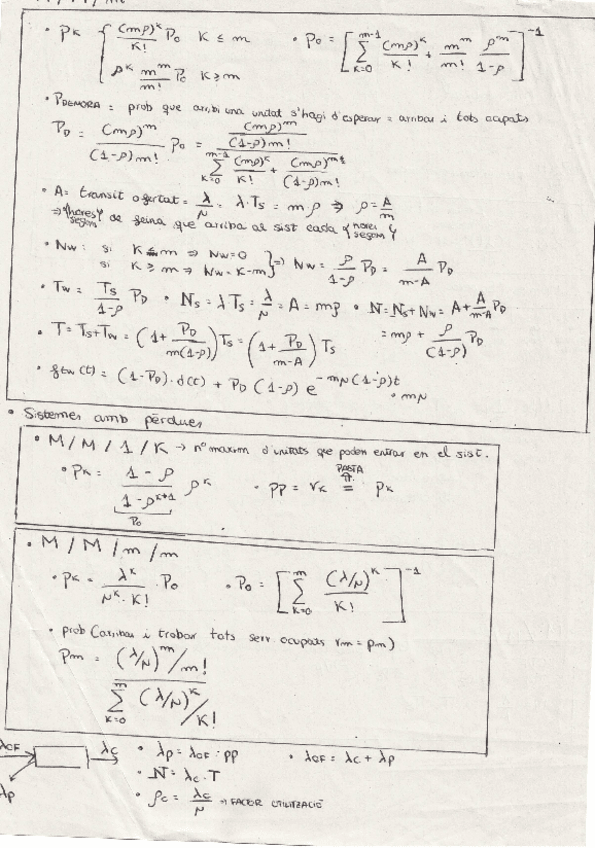 • PK { (mρ)^K / K! P0 K ≤ m • P0 = [ Σ_{K=0}^{m-1} (mρ)^K / K! + m^m / m! ρ^m / (1-ρ) ]^{-1}
ρ^K m^m / m! P0 K ≥ m
• PDEMORA = prob que arribi una unitat s'hagi d'esperar = arribar i tots ocupats
PD = (mρ)^m / ((1-ρ)m!) P0 = [ (mρ)^m / ((1-ρ)m!) ] / [ Σ_{K=0}^{m-1} (mρ)^K / K! + (mρ)^m / ((1-ρ)m!) ]
• A = transit ofertat = λ/μ = λ·Ts = mρ ⇒ ρ = A/m
⇒ {hores segons} de feina que arriba al sist cada {hores segons}
• Nw: si K ≤ m ⇒ Nw=0
si K ≥ m ⇒ Nw=K-m } ⇒ Nw = ρ/(1-ρ) PD = A/(m-A) PD
• Tw = Ts/(1-ρ) PD • Ns = λTs = λ/μ = A = mρ • N = Ns+Nw = A + A/(m-A) PD
= mρ + ρ/(1-ρ) PD
• T = Ts+Tw = (1 + PD/(m(1-ρ))) Ts = (1 + PD/(m-A)) Ts
• ftw(t) = (1-PD)·d(t) + PD (1-ρ) e^{-mμ(1-ρ)t} • mμ
• Sistemes amb pèrdues
• M/M/1/K → nº maxim d'unitats que poden entrar en el sist.
• PK = (1-ρ)/(1-ρ^{K+1}) ρ^K • PP = rK = PK
PASTA
P0
• M/M/m/m
• PK = λ^K / (μ^K·K!) · P0 • P0 = [ Σ_{K=0}^{m} (λ/μ)^K / K! ]^{-1}
• prob (arribar i trobar tots serv. ocupats rm = pm)
Pm = [ (λ/μ)^m / m! ] / [ Σ_{K=0}^{m} (λ/μ)^K / K! ]
λOF λC • λp = λOF · PP • λOF = λC + λp
• N = λC·T
λp • ρC = λC/μ → FACTOR UTILITZACIÓ